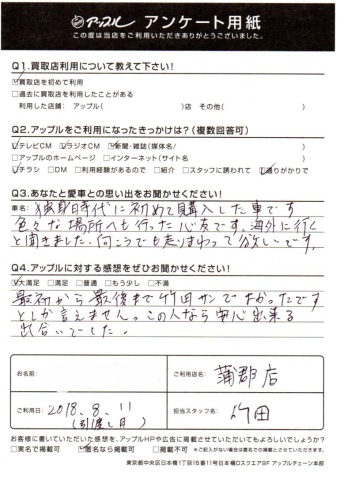 アップル アンケート用紙
この度は当店をご利用いただきありがとうございました。
Q1.買取店利用について教えて下さい!
☑買取店を初めて利用
□過去に買取店を利用したことがある
利用した店舗： アップル( )店 その他( )
Q2.アップルをご利用になったきっかけは?(複数回答可)
☑テレビCM ☑ラジオCM ☑新聞・雑誌(媒体名/ )
□アップルのホームページ □インターネット(サイト名 )
☑チラシ □DM □利用経験があるので □紹介 □スタッフに誘われて ☑通りがかりで
Q3.あなたと愛車との思い出をお聞かせください!
車名: 独身時代に初めて購入した車です
色々な場所へも行った心友です。海外に行く
と聞きました。何こうでも走りまわって欲しいです。
Q4.アップルに対する感想をぜひお聞かせください!
☑大満足 □満足 □普通 □もう少し □不満
最初から最後まで竹田サンでよかったです
としか言えません。この人なら安心出来る
出合いでした。
お名前:
ご利用店名: 蒲郡店
ご利用日: 2018.8.11
(引渡し日)
担当スタッフ名: 竹田
お客様に書いていただいた感想を、アップルHPや広告に掲載させていただいてもよろしいでしょうか?
□実名で掲載可 ☑匿名なら掲載可 □掲載不可 ※ご記入がない場合は匿名での掲載とさせていただきます。
東京都中央区日本橋1丁目16番11号日本橋Dスクエア9F アップルチェーン本部